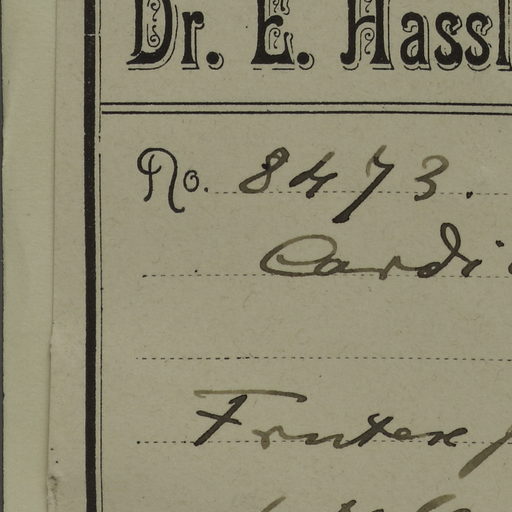 Dr. E. Hassl
No. 8473.
Cardi
Frutex